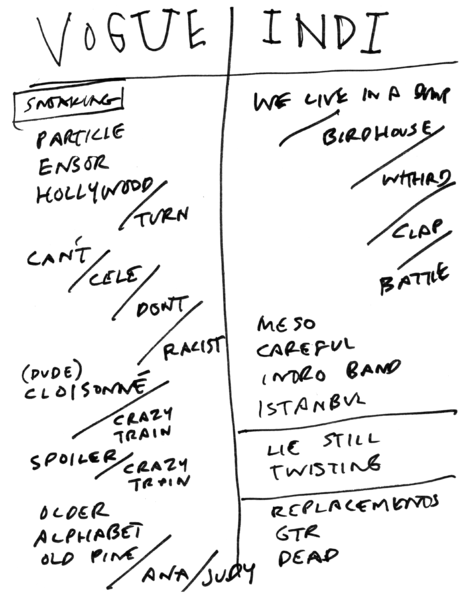 VOGUE
SMOKING
PARTICLE
ENSOR
HOLLYWOOD
TURN
CAN'T
CELE
DONT
RACIST
(DUDE)
CLOISONNÉ
CRAZY
TRAIN
SPOILER
CRAZY
TRAIN
OLDER
ALPHABET
OLD PINE
ANA/JUDY
INDI
WE LIVE IN A DUMP
BIRDHOUSE
WTHRD
CLAP
BATTLE
MESO
CAREFUL
INTRO BAND
ISTANBUL
LIE STILL
TWISTING
REPLACEMENTS
GTR
DEAD